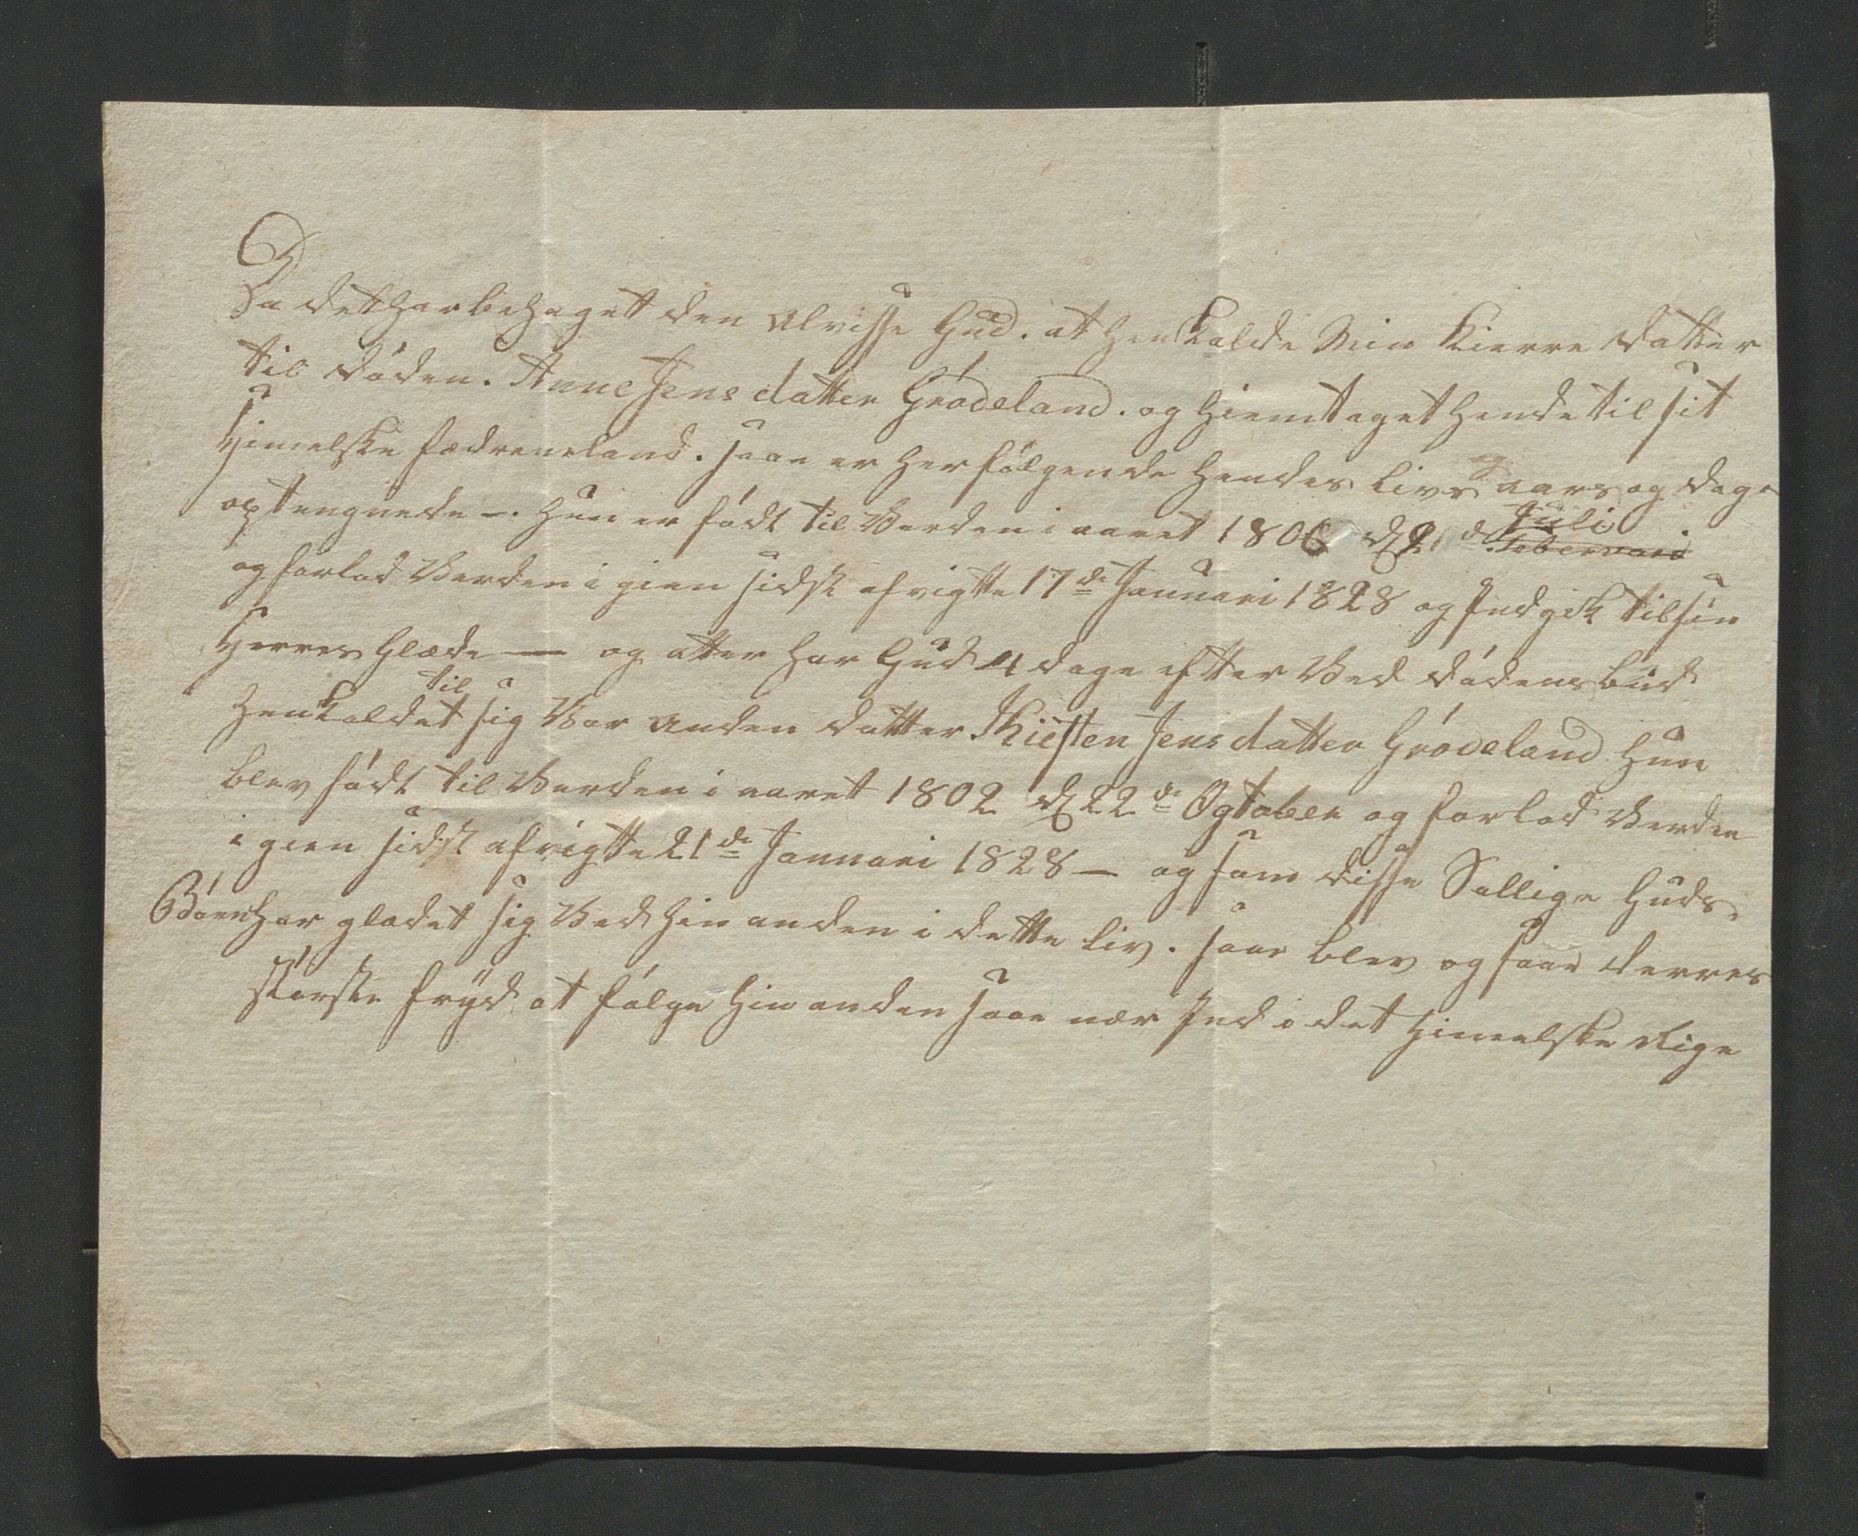 Da det har behaget den Alvisse Gud. at Henkalde Min Kierre datter
til døden. Anne Jensdatter Grødeland. og Hiemtaget Hende til sit
Himelske fædreneland. saae er Her følgende Hendes livs aars og dage
optengnede —. Hun er født til Verden i aaret 1806 d 21 d Juli Feberuari
og forlod Verden i gien sidst afvigtte 17de Januari 1828 og Indgik til sin
Herres Glæde — og atter Har Gud 4 dage efter Ved dødens bud
Henkaldet til sig Vor Anden datter Kiesten Jensdatter Grødeland Hun
blev født til Verden i aaret 1802 d 22de Ogtober og forlod Verden
i gien sidst afvigtte 21de Januari 1828 — og som disse Sallige Guds
Børn Har glædet sig Ved Hinanden i dette liv. saae blev og saae derres
størske fryd at følge Hinanden saae nær Ind i det Himelske Rige